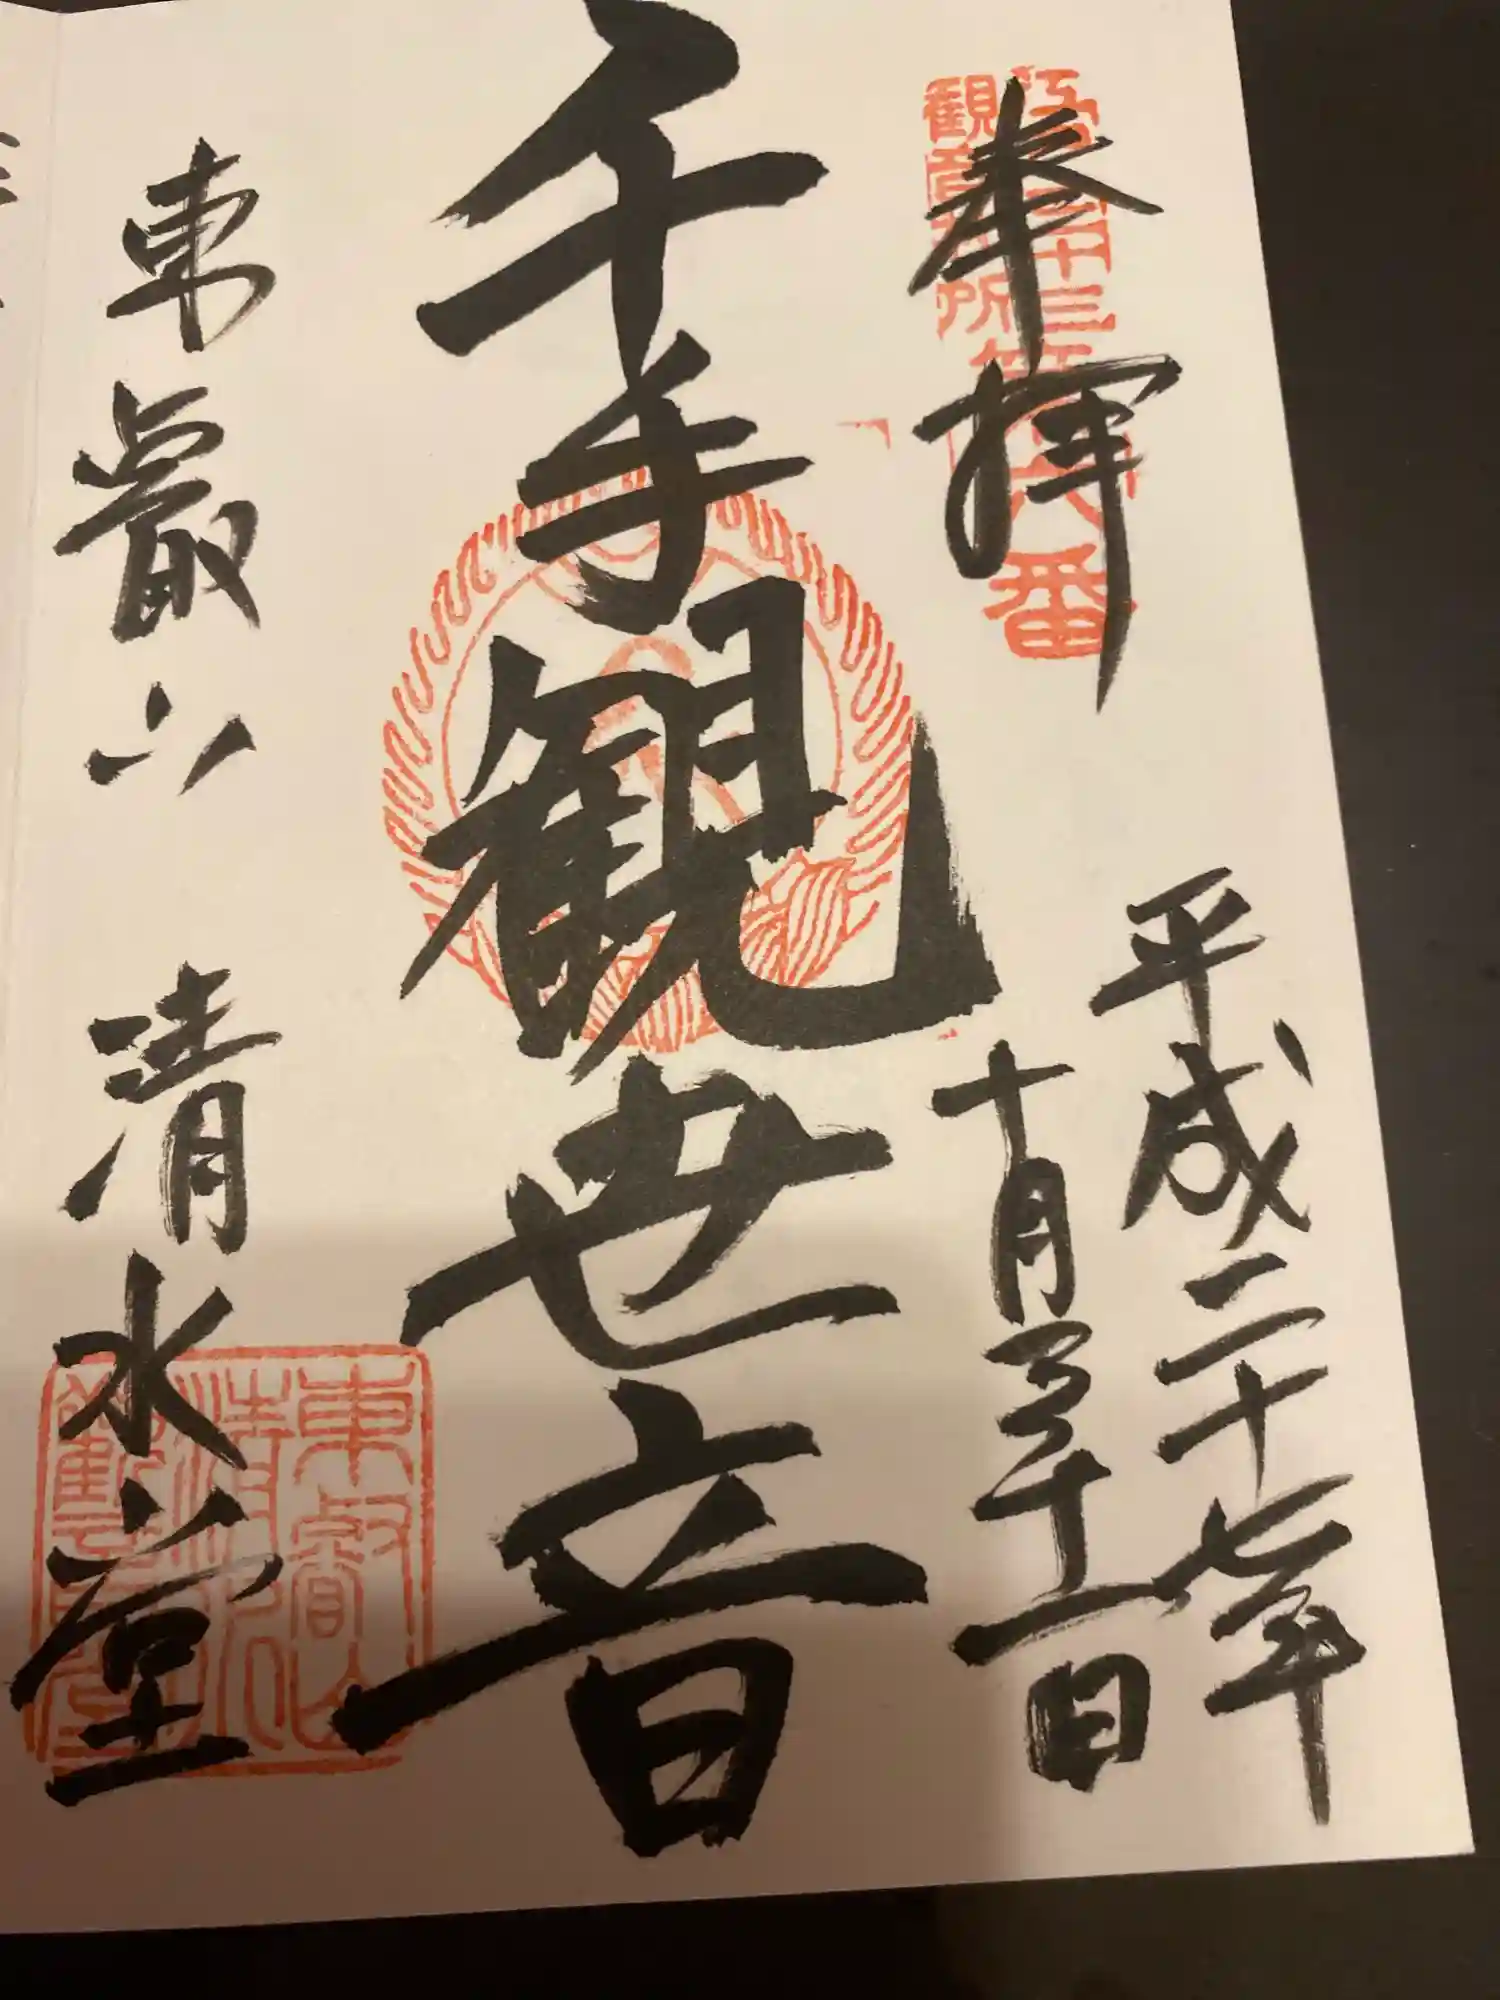 江戸三十三
観音札所
第六番
奉拝
平成二十七年
十月三十一日
千手観世音
東叡山 清水堂
東叡山
清水
觀音堂